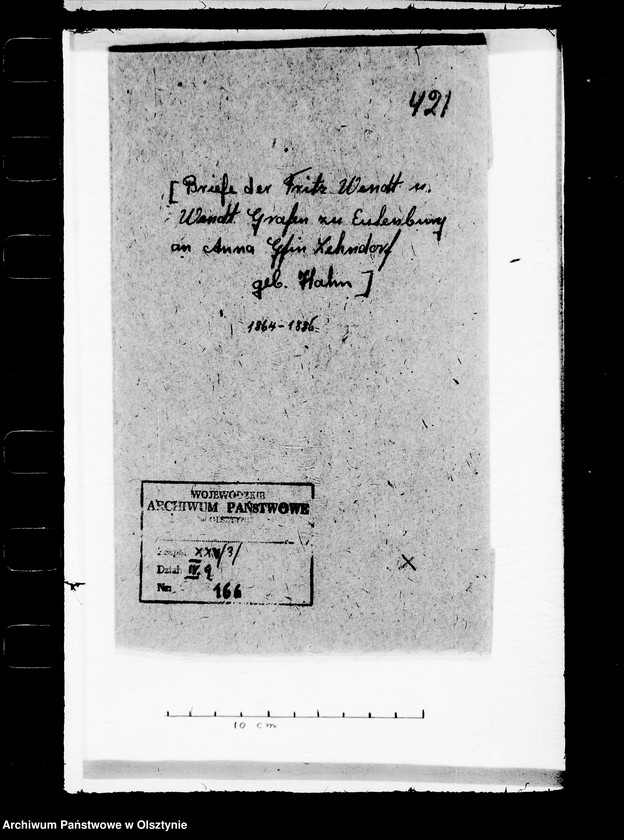 421
[Briefe der Fritz Wendt u.
Wendt Grafen zu Eulenburg
an Anna Gfin Lehndorf
geb. Hahn]
1864-1886
WOJEWÓDZKIE
ARCHIWUM PAŃSTWOWE
w OLSZTYNIE
Zespół XXVI/3/
Dział IV 9
Nr: 166
X
10 cm
Archiwum Państwowe w Olsztynie